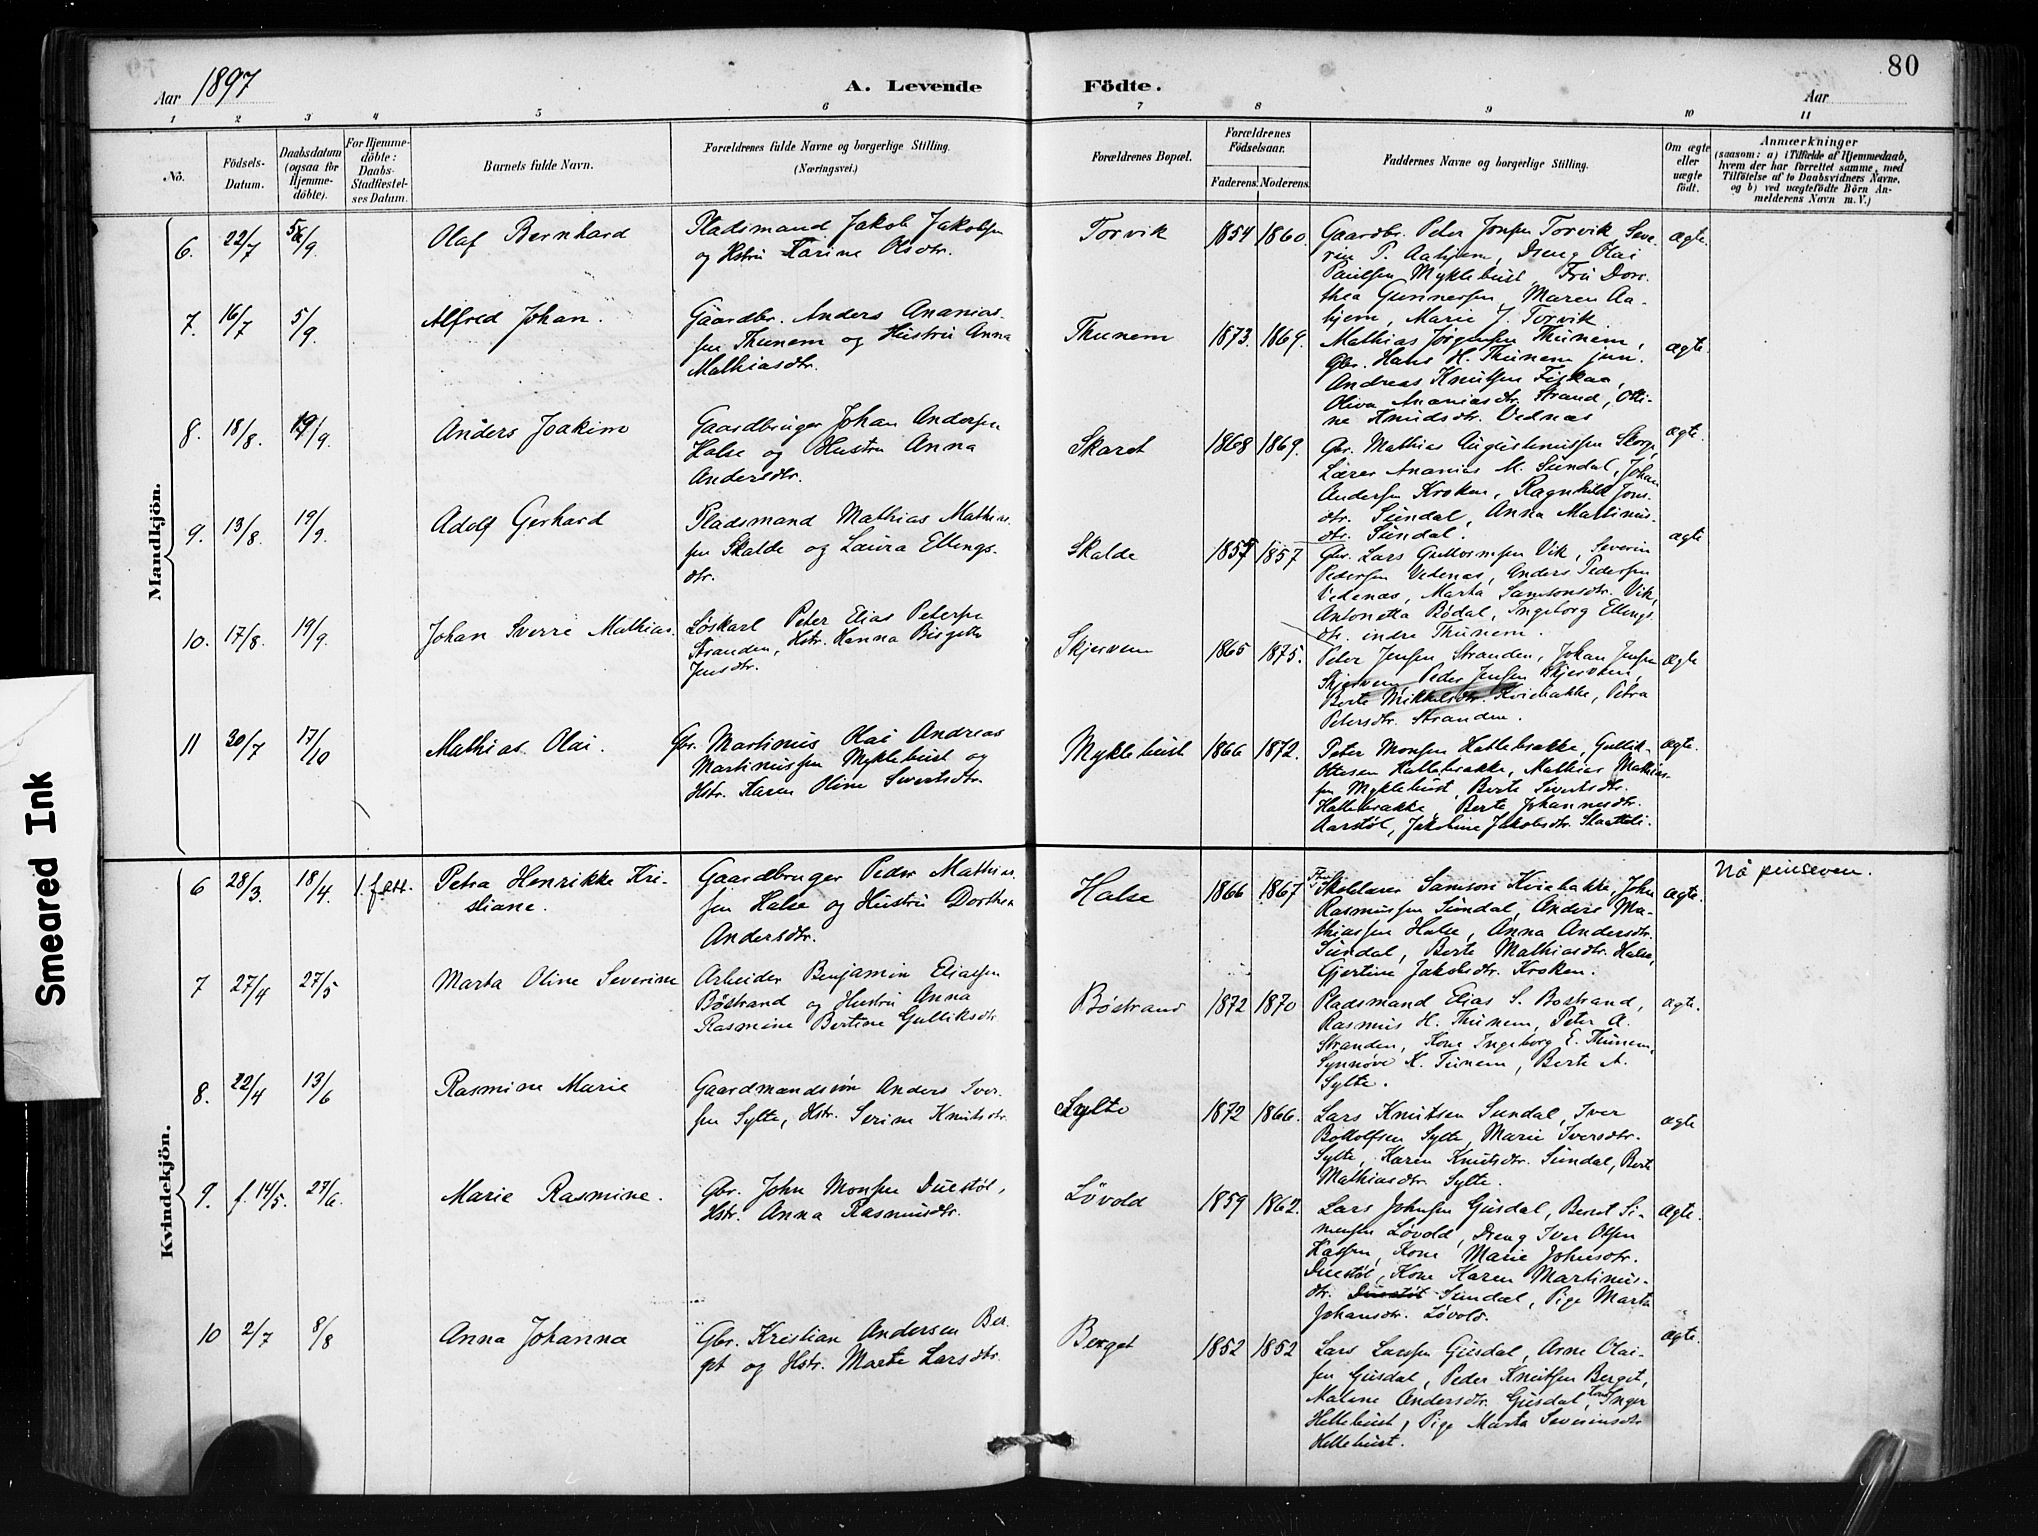 80
Aar 1897
A. Levende Födte.
Aar
1 2 3 4 5 6 7 8 9 10 11
No.
Födsels-Datum.
Daabsdatum (ogsaa for Hjemme-döbte).
For Hjemme-döbte: Daabs-Stadfæstel-ses Datum.
Barnets fulde Navn.
Forældrenes fulde Navne og borgerlige Stilling.
(Næringsvei.)
Forældrenes Bopæl.
Forældrenes Födselsaar.
Faderens. Moderens.
Faddernes Navne og borgerlige Stilling.
Om ægte eller uægte födt.
Anmærkninger
(saasom: a) i Tilfælde af Hjemmedaab,
hvem der har forrettet samme, med
Tilföielse af to Daabsvidners Navne,
og b) ved uægtefödte Börn An-
melderens Navn m. V.)
Mandkjön.
6. 22/7 5/9 Olaf Bernhard
Pladsmand Jakob Jakobsen
og Hstru Karine Olsdtr.
Torvik 1854 1860.
Gaardbr. Peter Jonsen Torvik Seve-
rin P. Aahjem, Dreng Olai
Paulsen Myklebust, Fru Doro-
thea Gunnersen, Maren Aa-
hjem, Marie J. Torvik
ægte.
7. 16/7 5/9. Alfred Johan.
Gaardbr. Anders Ananias-
sen Thunem og Hustru Anna
Mathiasdtr.
Thunem 1873. 1869.
Mathias Jørgensen Thunem,
Gbr. Hans H. Thunem jun.
Andreas Knutsen Fiskaa,
Oliva Ananiasdtr. Strand, Oli-
ne Knudsdtr. Vednæs
ægte.
8. 18/8. 19/9. Anders Joakim
Gaardbruger Johan Andersen
Halse og Hustru Anna
Andersdtr.
Skaret 1868 1869.
Gbr. Mathias Augustinussen Skorge,
Lærer Ananias M. Sundal, Johan
Andersen Kroken, Ragnhild Jons-
dtr. Sundal, Anna Martinus-
dtr. Sundal.
ægte.
9. 13/8. 19/9. Adolf Gerhard
Pladsmand Mathias Mathias-
sen Skalde og Laura Ellings-
dtr.
Skalde 1857
Gbr. Lars Guttormsen Vik, Severin
Pedersen Vedenæs, Anders Pedersen
Vedenæs, Marta Samsonsdtr. Vik,
Antonetta Bödal, Ingeborg Ellings-
dtr. indre Thunem.
ægte
10. 17/8. 19/9. Johan Sverre Mathias.
Løskarl Peter Elias Petersen
Stranden, Hstr. Hanna Birgette
Jensdtr.
Skjervem 1865 1875.
Peter Jensen Stranden, Johan Jensen
Skjervem, Peder Jensen Skjervem,
Berte Mikkelsdtr. Kviebakke, Petra
Petersdtr. Stranden.
ægte
11 30/7 17/10 Mathias Olai.
Gbr. Martinus Olai Andreas
Martinussen Myklebust og
Hstr. Karen Oline Sivertsdtr.
Myklebust 1866 1872.
Peter Monsen Hallebrække, Gullik
Ottesen Hallebrække, Mathias Mathias-
sen Myklebust, Berte Sivertsdtr.
Hallebrække, Berte Johannesdtr.
Aarstöl, Jakobine Jakobsdtr. Skaatteli.
ægte.
Kvindekjön.
6 28/3. 18/4. Petra Henrikke Kri-
stiane.
Gaardbruger Peder Mathias-
sen Halse og Hustru Dorthea
Andersdtr.
Halse 1866 1867.
Skolelærer Samson Kviebakke, John
Rasmussen Sundal, Anders Ma-
thiassen Halse, Anna Andersdtr.
Sundal, Berte Mathiasdtr. Halse,
Gjertine Jakobsdtr. Kroken.
ægte.
No pinseven.
7 27/4 27/5 Marta Oline Severine
Arbeider Benjamin Eliassen
Böstrand og Hustru Anna
Rasmine Bertine Gulliksdtr
Böstrand 1872 1870
Pladsmand Elias S. Bostrand,
Rasmus H. Thunem, Peter A.
Stranden, Kone Ingeborg E. Thunem,
Synnöve K. Tunem, Berte A.
Sylte.
ægte.
8. 22/4 13/6 Rasmine Marie
Gaardmandssön Anders Iver-
sen Sylte, Hstr. Serine Knutsdtr.
Sylte 1872 1866.
Lars Knutsen Sundal, Iver
Bottolfsen Sylte, Marie Iversdtr.
Sylte, Karen Knutsdtr. Sundal, Berte
Mathiasdtr. Sylte.
ægte
9. f. 14/5. 27/6. Marie Rasmine.
Gbr. John Monsen Duestöl,
Hstr. Anna Rasmusdtr.
Lövold 1859 1862.
Lars Johnsen Gusdal, Bernt Si-
monsen Lövold, Dreng Iver Olsen
Kone Marie Johnsdtr.
Duestöl, Kone Karen Martinus-
dtr. Duestöl Sundal, Pige Marta
Johansdtr. Lövold.
ægte.
10 2/7 8/8 Anna Johanna
Gbr. Kristian Andersen Ber-
get og Hstr. Marte Larsdtr.
Berget 1852 1852
Lars Larsen Gusdal, Arne Olai-
sen Gusdal, Peder Knutsen Berget,
Malene Andersdtr. Gusdal, Inger
Hellebust, Pige Marta Severinsdtr
Hellebust.
ægte.
Smeared Ink